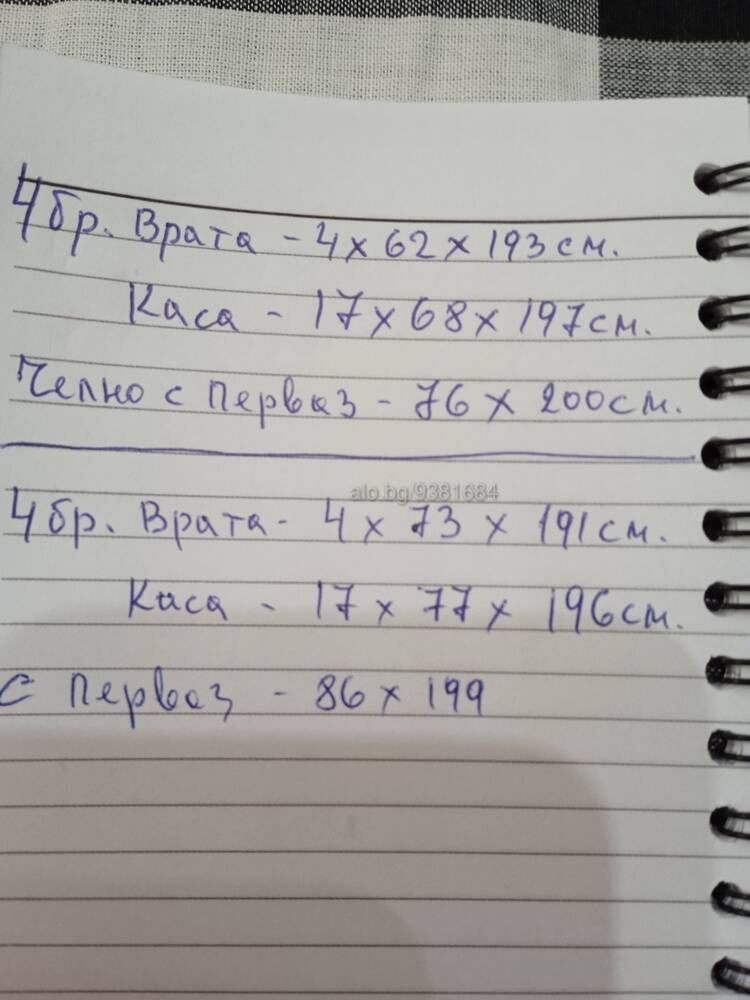 4 бр. Врата - 4 x 62 x 193 см.
Каса - 17 x 68 x 197 см.
Челно с перваз - 76 x 200 см.
alo.bg/9381684
4 бр. Врата - 4 x 73 x 191 см.
Каса - 17 x 77 x 196 см.
с перваз - 86 x 199